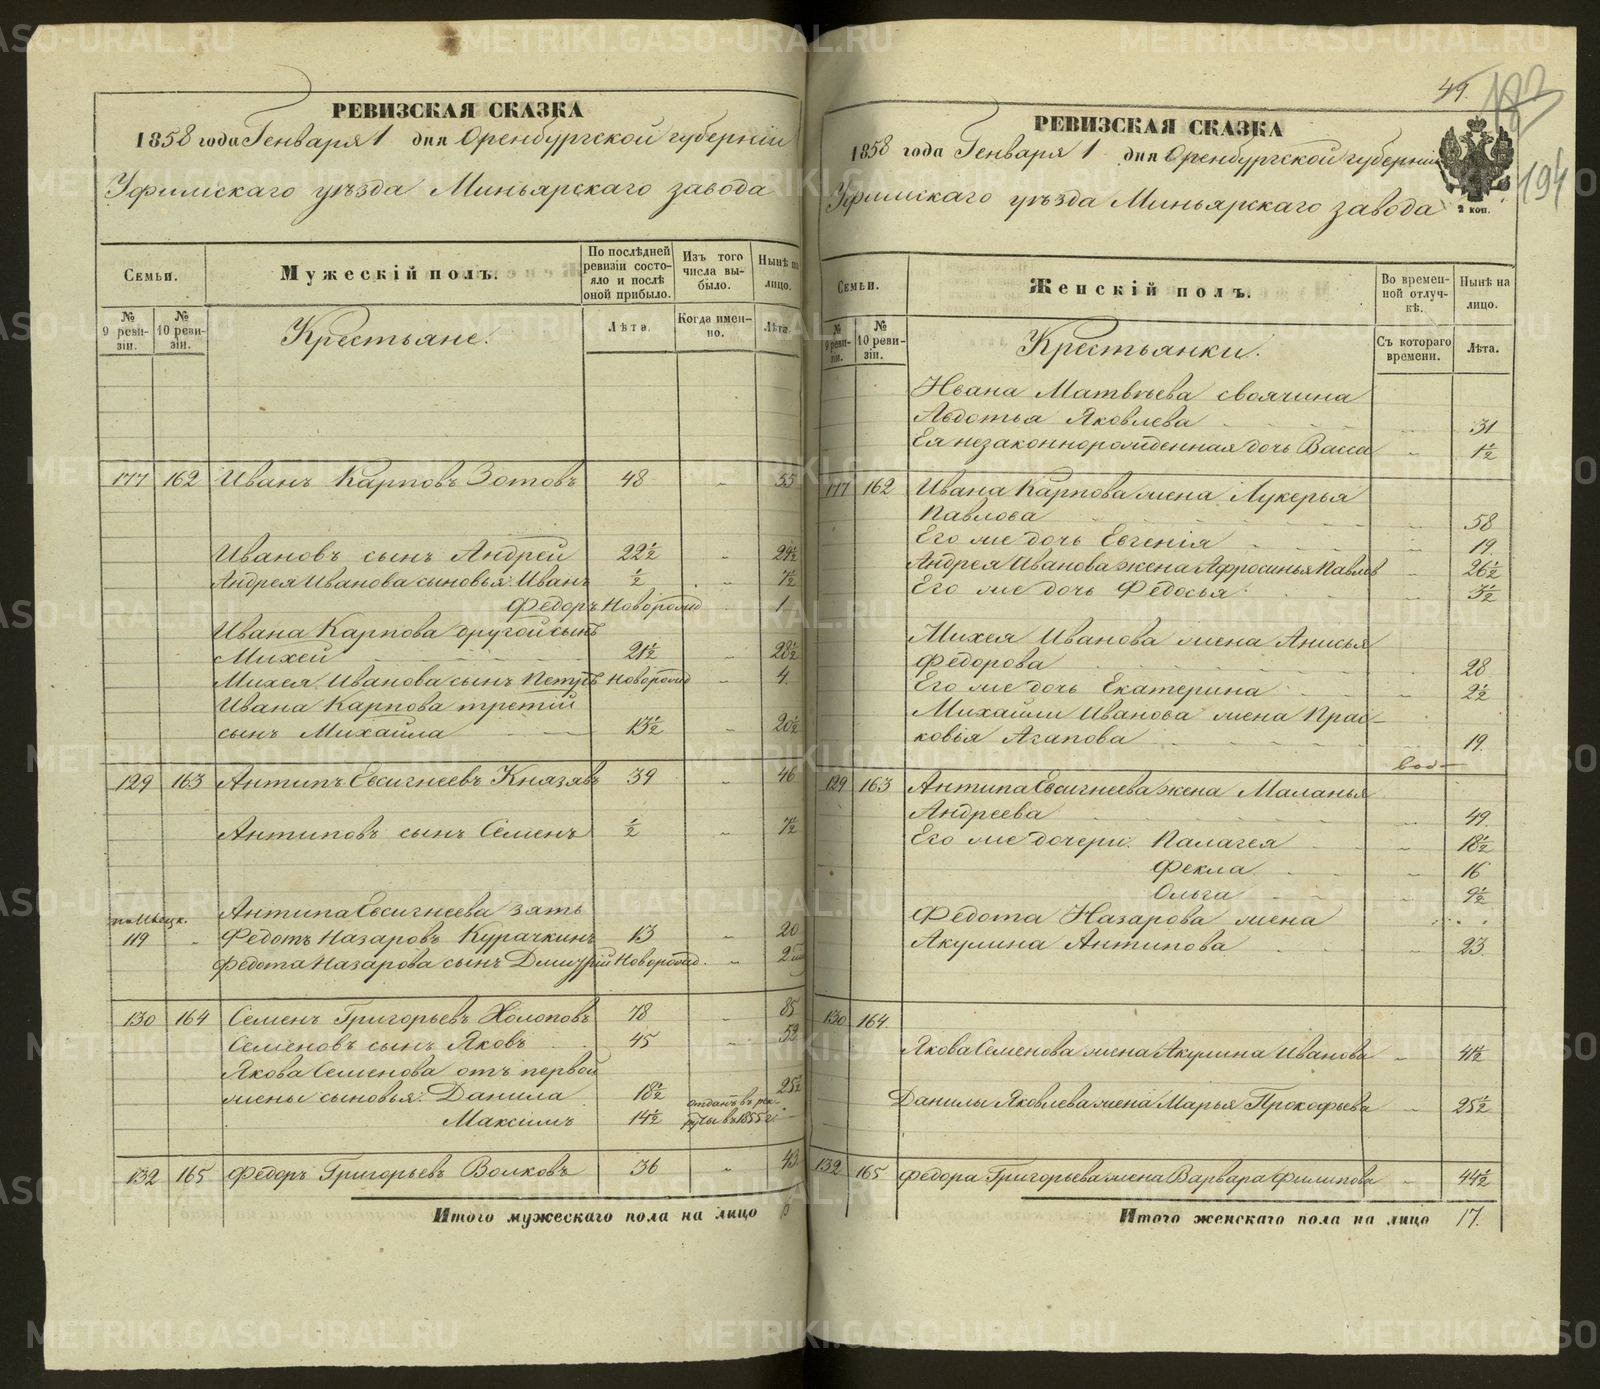 РЕВИЗСКАЯ СКАЗКА
1858 года Генваря 1 дня Оренбургской губернии
Уфимскаго уѣзда Миньярскаго завода
Семьи.
Мужескій полъ.
По послѣдней ревизіи состояло и послѣ оной прибыло.
Изъ того числа выбыло.
Нынѣ на лицо.
№ 9 ревизіи.
№ 10 ревизіи.
Крестьяне.
Лѣта.
Когда именно.
Лѣта.
177 162 Иванъ Карповъ Зотовъ 48 „ 55
Ивановъ сынъ Андрей 22½ „ 29½
Андрея Иванова сыновья: Иванъ ½ „ 7½
Федоръ Новорожд „ 1
Ивана Карпова другой сынъ
Михей 21½ „ 28½
Михея Иванова сынъ Петръ Новорожд „ 4
Ивана Карпова третій
сынъ Михайла 13½ „ 20½
129 163 Антипъ Евсигнеевъ Князевъ 39 „ 46
Антиповъ сынъ Семенъ ½ „ 7½
Антипа Евсигнеева зять
119 „ Федотъ Назаровъ Курачкинъ 13 „ 20
Федота Назарова сынъ Дмитрій Новорожд. „ 2
130 164 Семенъ Григорьевъ Холоповъ 78 „ 85
Семеновъ сынъ Яковъ 45 „ 52
Якова Семенова отъ первой
жены сыновья: Данила 18½ 25½
Максимъ 14½ отданъ въ рекруты въ 1855 г.
132 165 Федоръ Григорьевъ Волковъ 36 „ 43
Итого мужескаго пола на лицо
49.
183
194
РЕВИЗСКАЯ СКАЗКА
1858 года Генваря 1 дня Оренбургской губерніи
Уфимскаго уѣзда Миньярскаго завода
2 коп.
Семьи.
Женскій полъ.
Во временной отлучкѣ.
Нынѣ на лицо.
№ 9 ревизіи.
№ 10 ревизіи.
Крестьянки.
Съ котораго времени.
Лѣта.
Ивана Матвѣева своячина
Авдотья Яковлева „ 31
Ея незаконнорожденная дочь Васса „ 1½
177 162 Ивана Карпова жена Лукерья
Павлова „ 58
Его же дочь Евгенія „ 19.
Андрея Иванова жена Афросинья Павлов „ 26½
Его же дочь Федосья „ 3½
Михея Иванова жена Анисья
Федорова „ 28
Его же дочь Екатерина „ 2½
Михайлы Иванова жена Прас-
ковья Агапова „ 19.
129 163 Антипа Евсигнеева жена Маланья
Андреева „ 49.
Его же дочери: Палагея „ 18½
Фекла „ 16
Ольга „ 9½
Федота Назарова жена
Акулина Антипова „ 23.
130 164.
Якова Семенова жена Акулина Иванова „ 41½
Данилы Яковлева жена Марья Прокофьева „ 25½
132 165 Федора Григорьева жена Варвара Филипова „ 44½
Итого женскаго пола на лицо 17.
METRIKI.GASO-URAL.RU